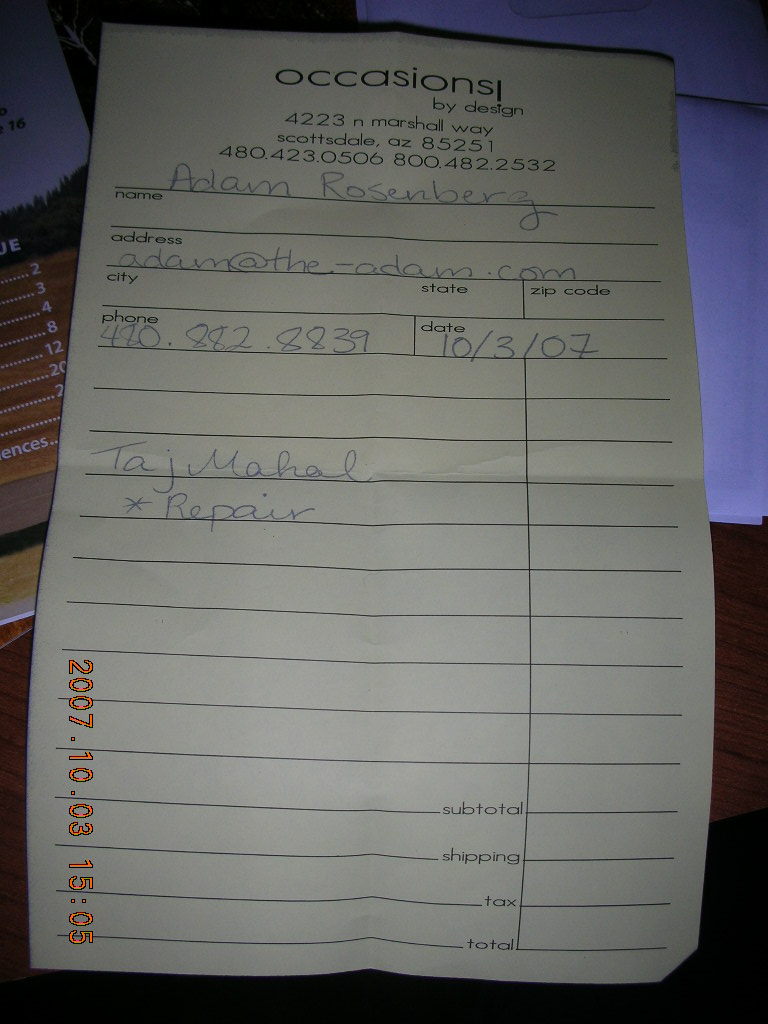 occasions!
by design
4223 n marshall way
scottsdale, az 85251
480.423.0506 800.482.2532
Adam Rosenberg
name
address
adam@the-adam.com
city state zip code
phone date
480.882.8839 10/3/07
Taj Mahal
* Repair
subtotal
shipping
tax
total
2007.10.03 15:05
16
UE
2
3
4
8
12
20
2
ences..